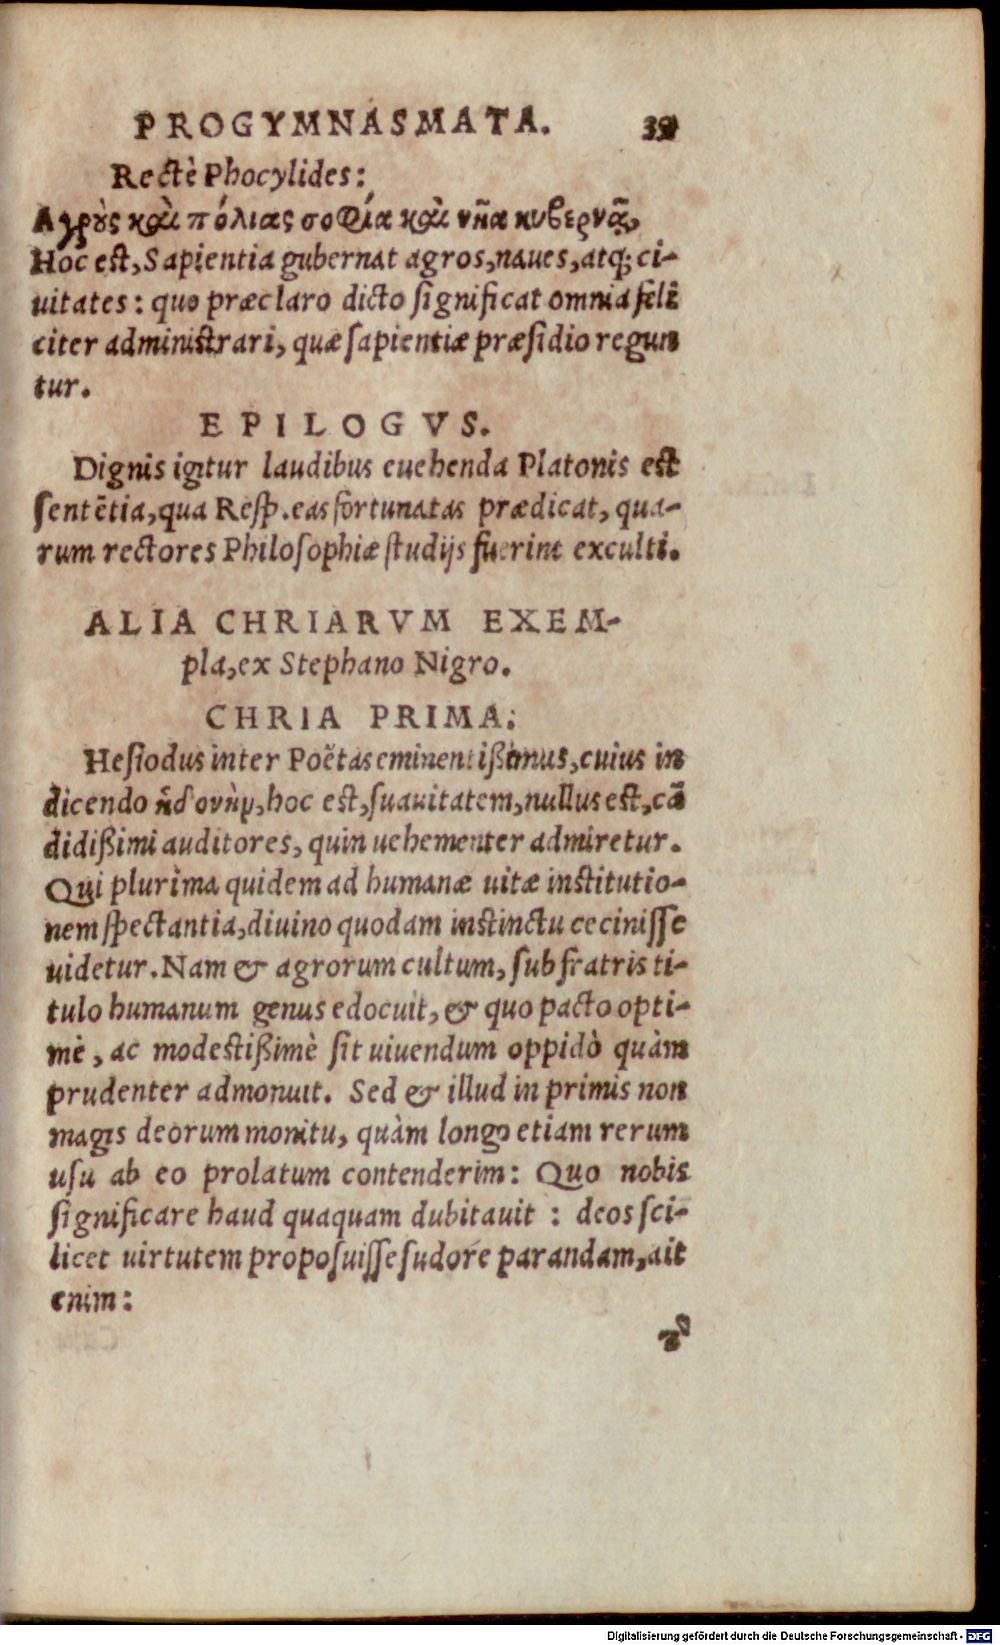 PROGYMNASMATA. 39
Rectè Phocylides:
Αγροὺς καὶ πόλιας σοφία καὶ νῆα κυβερνᾷ,
Hoc est, Sapientia gubernat agros, naues, atq; ci-
uitates: quo præclaro dicto significat omnia feli
citer administrari, quæ sapientiæ præsidio regun
tur.
EPILOGVS.
Dignis igitur laudibus euehenda Platonis est
sentētia, qua Resp. eas fortunatas prædicat, qua-
rum rectores Philosophiæ studijs fuerint exculti.
ALIA CHRIARVM EXEM-
pla, ex Stephano Nigro.
CHRIA PRIMA.
Hesiodus inter Poëtas eminentißimus, cuius in
dicendo ἡδονὴν, hoc est, suauitatem, nullus est, cā
didißimi auditores, quin uehementer admiretur.
Qui plurima quidem ad humanæ uitæ institutio-
nem spectantia, diuino quodam instinctu cecinisse
uidetur. Nam & agrorum cultum, sub fratris ti-
tulo humanum genus edocuit, & quo pacto opti-
mè, ac modestißimè sit uiuendum oppidò quàm
prudenter admonuit. Sed & illud in primis non
magis deorum monitu, quàm longo etiam rerum
usu ab eo prolatum contenderim: Quo nobis
significare haud quaquam dubitauit : deos sci-
licet uirtutem proposuisse sudore parandam, ait
enim:
Digitalisierung gefördert durch die Deutsche Forschungsgemeinschaft - DFG